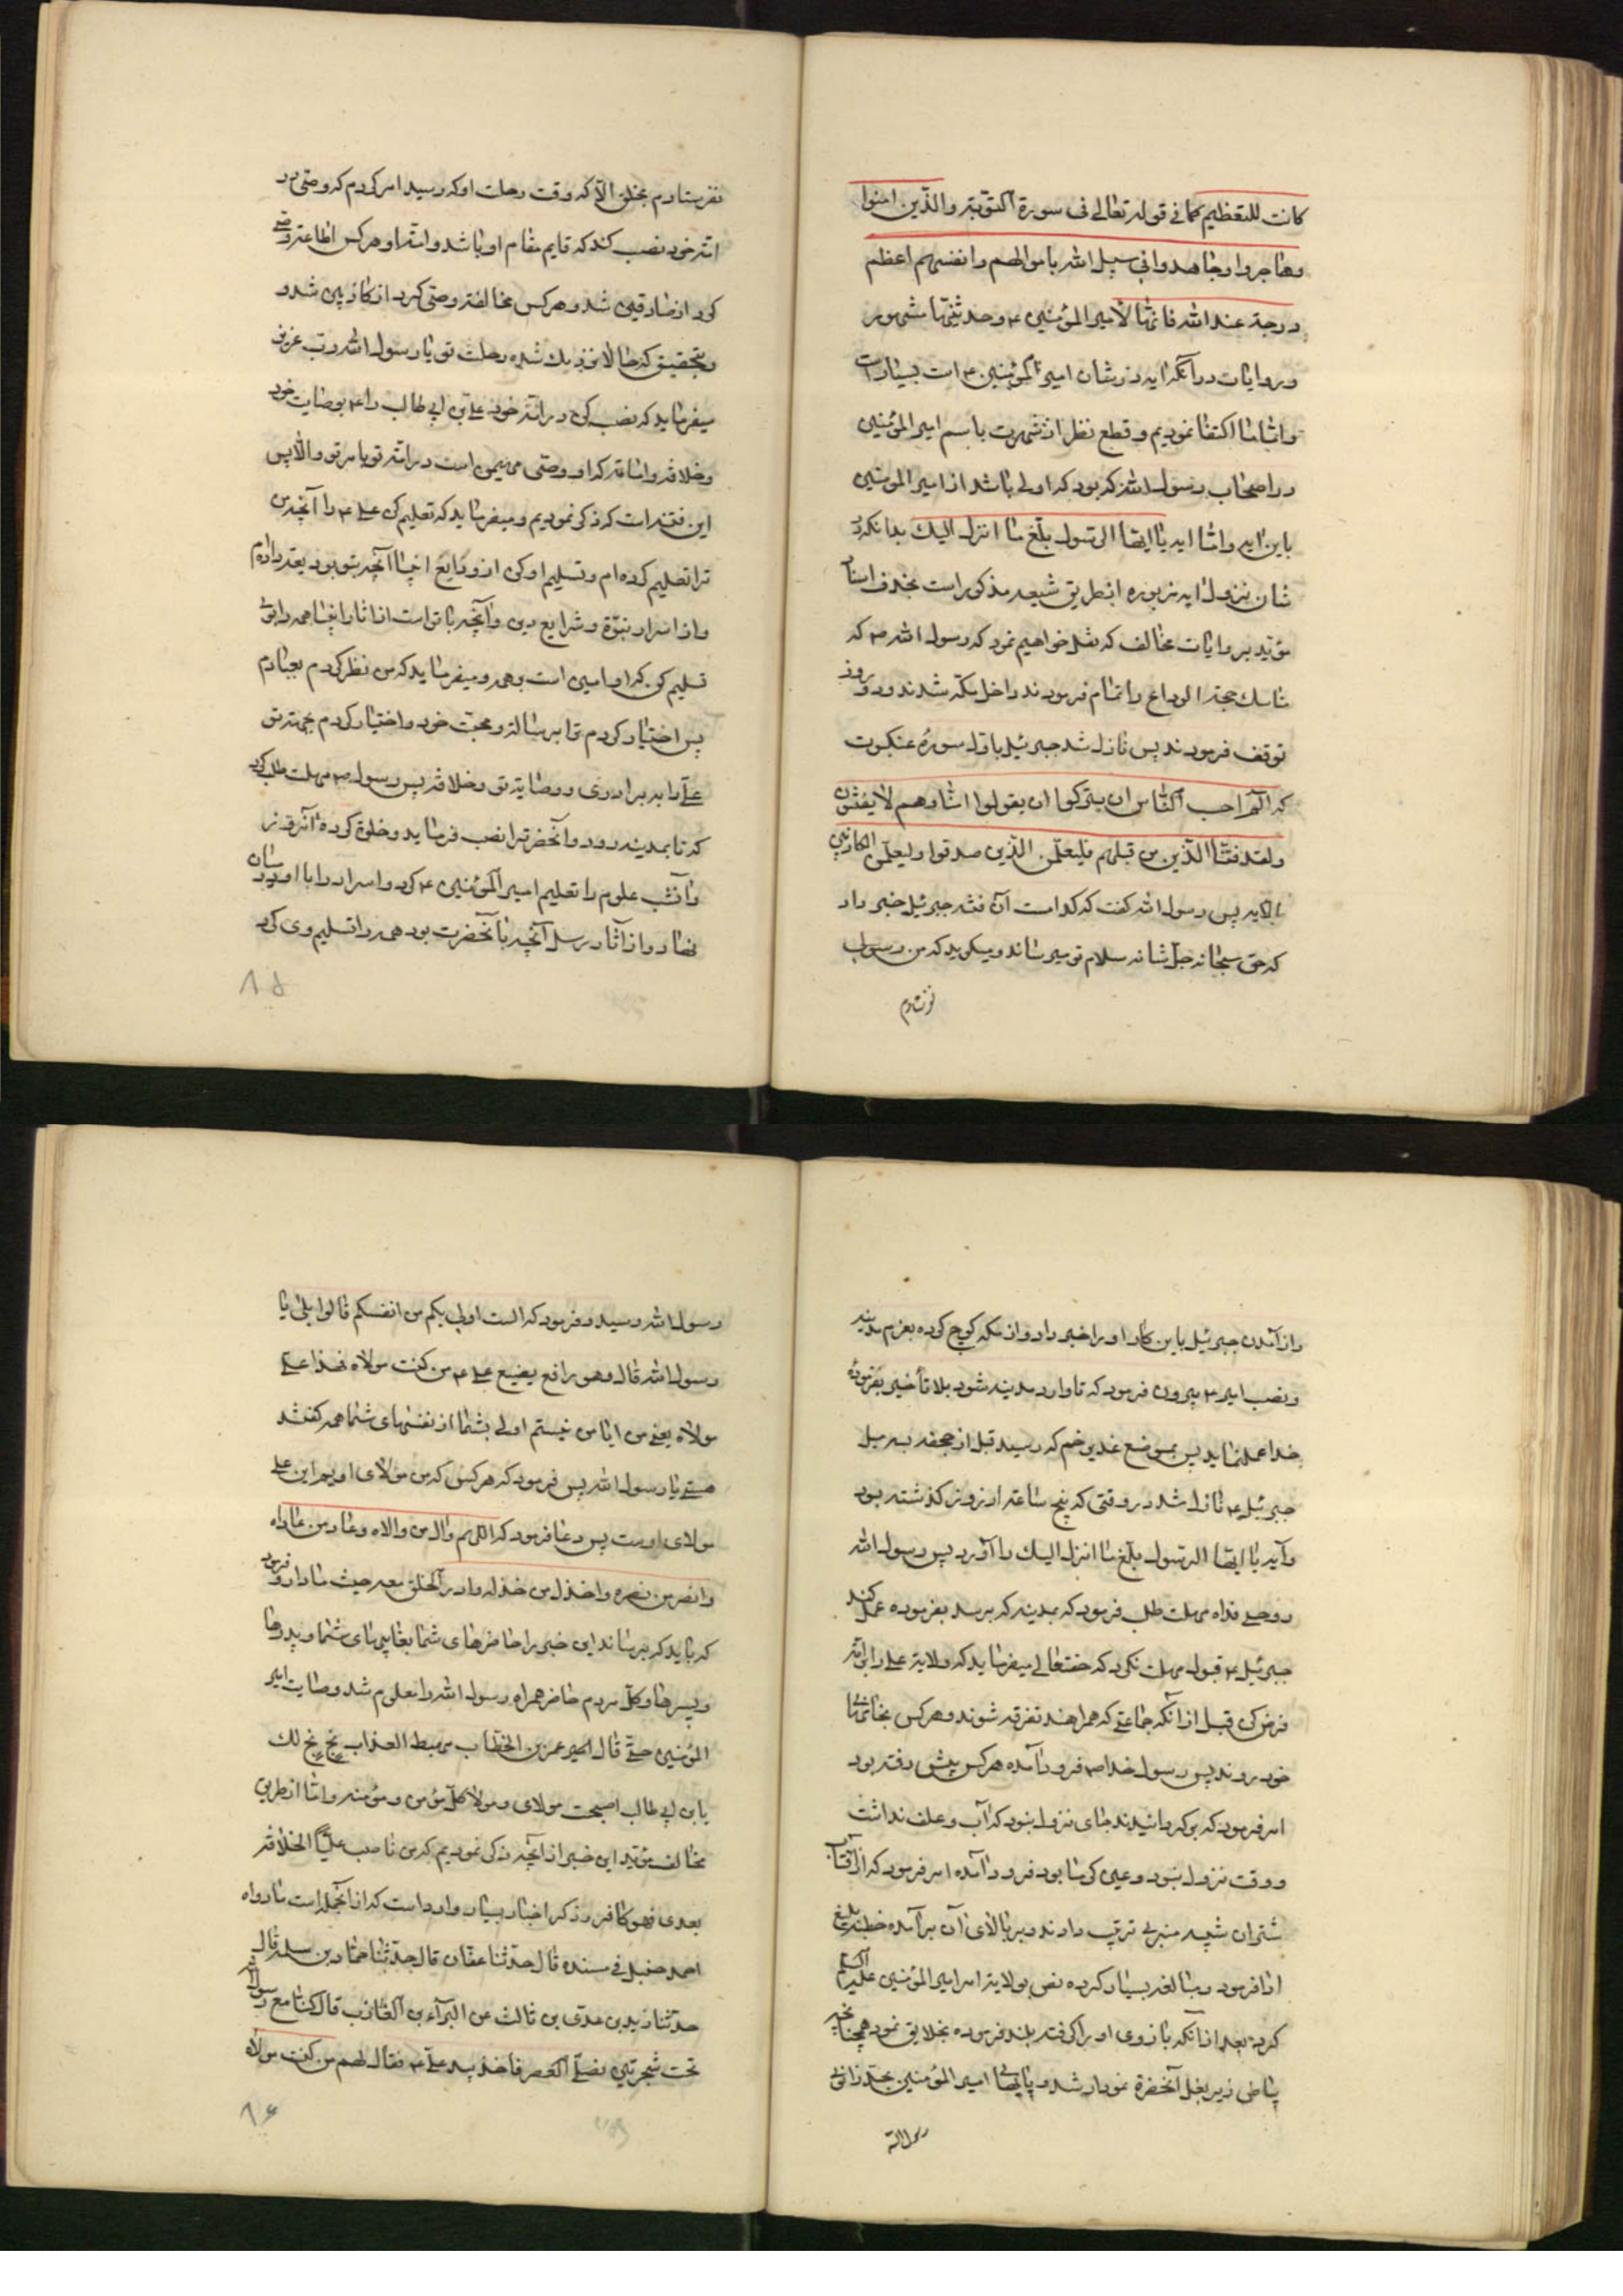 كانت للتعظيم كما في قوله تعالى في سورة التوبة والذين امنوا
وهاجروا وجاهدوا في سبيل الله باموالهم وانفسهم اعظم
درجة عند الله فانها لأمير المؤمنين ۴ وحديثها مشهور
وروايات در آنكه ايه در شان امير المؤمنين ۴ است بسيار است
واما ما اكتفا نموديم و قطع نظر از شهرت باسم امير المؤمنين
در اصحاب رسول الله كه بود كه اولى باشد از امير المؤمنين
باين ايه واما ايه يا ايها الرسول بلّغ ما انزل اليك بدانكه در
شان نزول ايه مزبوره از طريق شيعه مذكور است بحذف اسناد
مؤيد بروايات مخالف كه نقل خواهيم نمود كه رسول الله ص كه
مناسك حجة الوداع را تمام فرمودند داخل مكه شدند و دو روز
توقف فرمودند پس نازل شد جبرئيل باول سوره عنكبوت
كه الم احسب الناس ان يتركوا ان يقولوا امنا وهم لا يفتنون
ولقد فتنا الذين من قبلهم فليعلمن الذين صدقوا وليعلمن الكاذبين
پس رسول الله كفت كه كدامست آن فتنه جبرئيل خبر داد
كه حق سبحانه جل شانه سلام تو ميرساند و ميكويد كه من رسولى
نفرستادم
نفرستادم بخلق الا كه وقت رحلت او كه رسيد امر كردم كه وصى در
امّة خود نصب كند كه قايم مقام او باشد و امّة او هركس اطاعة وصى
كرد از صادقين شد و هركس مخالفة وصى كرد از كاذبين شد و
بتحقيق كه حالا نزديك شده رحلت تو يا رسول الله و رب عزت
ميفرمايد كه نصب كن در امّة خود على بن ابى طالب را ۴ بوصايت خود
وخلافة وامامة كه او وصى است در امّة تو بامر تو والا پس
اين فتنه است كه ذكر نموديم و ميفرمايد كه تعليم كن على ۴ را آنچه من
ترا تعليم كرده ام و تسليم او كن از ودايع انبيا آنچه بتو داده ام
واز اسرار نبوّة و شرايع دين و آنچه با تو است از اثار انبيا همه را باو
تسليم كن كه او امين است و هم ميفرمايد كه من نظر كردم بعبادم
پس اختيار كردم ترا برسالة و محبت خود و اختيار كردم بجهة تو
على را به برادرى و وصاية تو و خلافة پس رسول ص مهلت طلب كرد
كه تا بمدينه رود و آنحضرترا نصب فرمايد و خلوة كرده آنروز
وآنشب علوم را تعليم امير المؤمنين ۴ كرد و اسرار را با او درميان
نهاد و از آثار رسل آنچه با آنحضرت بود همه را تسليم وى كرد
۸۵
واز آمدن جبرئيل باين كار او را خبر داد و از مكه كوچ كرده بعزم مدينه
ونصب امير ۴ بيرون فرمود كه تا وارد مدينه شود بلا تأخير بفرموده
خدا عمل نمايد پس بموضع غدير خم كه رسيد قبل از جحفه بسه ميل
جبرئيل ۴ نازل شد در وقتى كه پنج ساعة از روز كذشته بود
وآيه يا ايها الرسول بلّغ ما انزل اليك را آورد پس رسول الله
روحى فداه مهلت طلب فرمود كه بمدينه كه برسد بفرموده عمل كند
جبرئيل ۴ قبول مهلت نكرد كه حقتعالى ميفرمايد كه ولاية على را بر امّة
فرض كن قبل از آنكه جماعتى كه همراهند متفرق شوند و هركس بخانهاى
خود روند پس رسول خدا ص فرود آمده هركس پيش رفته بود
امر فرمود كه بركردانيدند جاى نزول نبود كه آب و علف نداشت
ووقت نزول نبود وعين كرما بود فرود آمده امر فرمود كه از اقتاب
شتران شبيه منبرى ترتيب دادند و بر بالاى آن برآمده خطبه بليغ
ادا فرمود و مبالغه بسيار كرده نص بولاية امر امير المؤمنين عليه السلم
كرد بعد از آنكه بازوى او را كرفته بلند فرموده بخلايق نمود همچنانچه
بياض زير بغل آنحضرة نمودار شد و پايهاى امير المؤمنين بحد زانوى
رسول الله
رسول الله رسيد و فرمود كه الست اولى بكم من انفسكم قالوا بلى يا
رسول الله قال وهو رافع بضبع على ۴ من كنت مولاه فهذا على
مولاه يعنى من ايا من نيستم اولى بشما از نفسهاى شما همه كفتند
هستى يا رسول الله پس فرمود كه هركس كه من مولاى اويم اين على
مولاى اوست پس دعا فرمود كه اللهم وال من والاه وعاد من عاداه
وانصر من نصره واخذل من خذله وادر الحق معه حيث ما دار و فرمود
كه بايد كه برساند اين خبر را حاضرهاى شما بغايبهاى شما و پدرها
وپسرها و كل مردم حاضر همراه رسول الله را معلوم شد وصايت امير
المؤمنين حتى قال عمر بن الخطاب بخ بخ لك
يا بن ابى طالب اصبحت مولاى ومولا كل مؤمن ومؤمنه واما از طريق
مخالف مؤيد اين خبر از آنچه ذكر نموديم كه من ناصب عليّا الخلافة
بعدى فهو كافر وذكر اخبار بسيار وارد است كه از آنجمله است ما رواه
احمد حنبل فى مسنده قال حدثنا عفان قال حدثنا حماد بن سلمه قال
حدثنا زيد بن عدى بن ثابت عن البرآء بن العازب قال كنا مع رسول الله
تحت شجرتين فصلى العصر فاخذ بيد على ۴ فقال لهم من كنت مولاه
۸۶